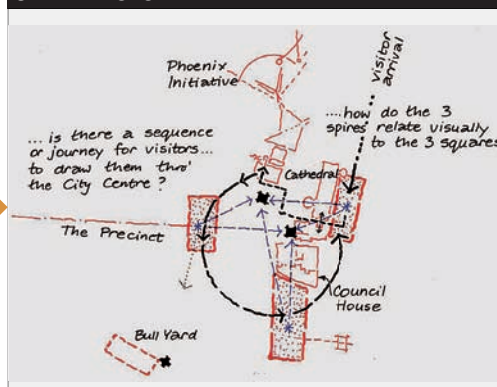 Phoenix
Initiative
visitor
arrival
... is there a sequence
or journey for visitors...
to draw them thro'
the City Centre ?
....how do the 3
spires relate visually
to the 3 squares
Cathedral
The Precinct
Council
House
Bull Yard